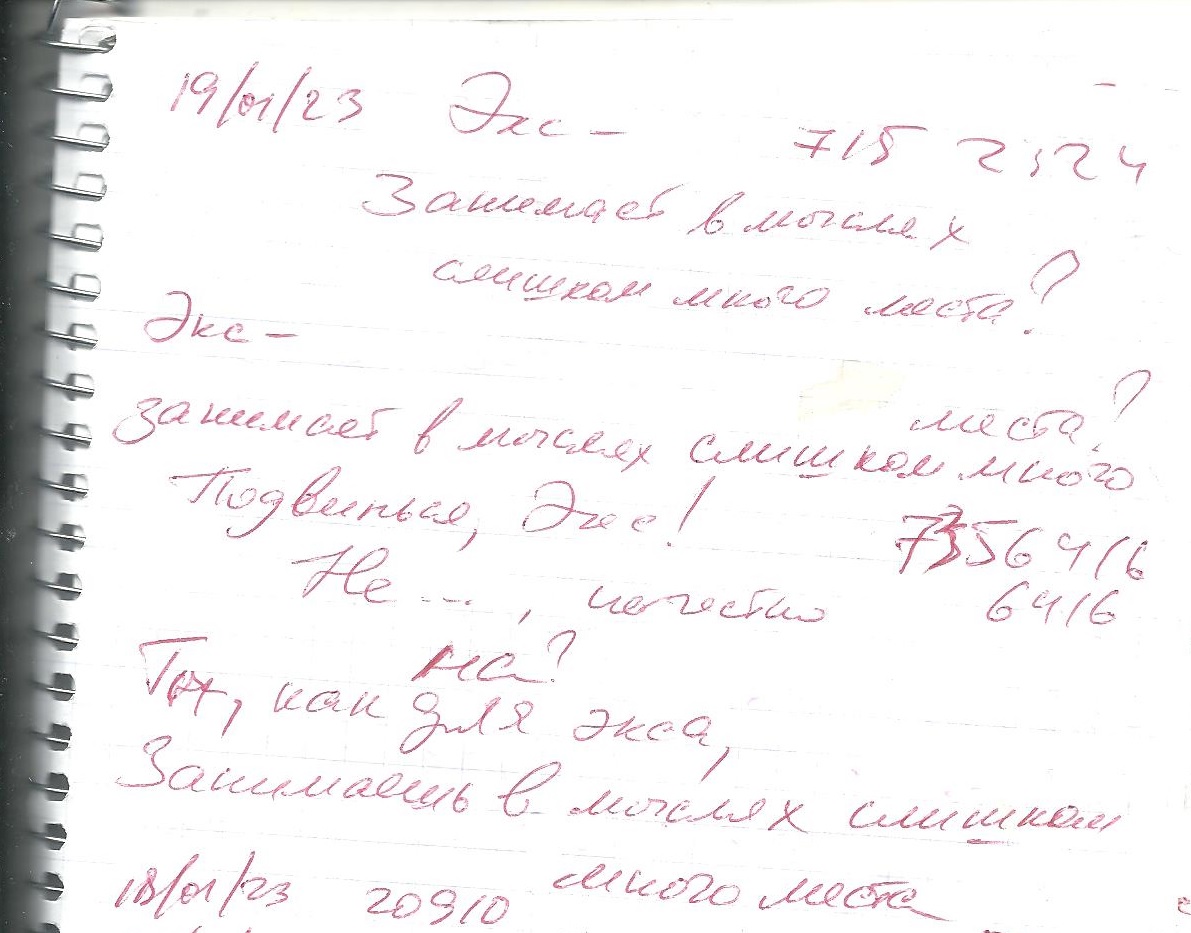 19/01/23 Экс- 715 2,24
Занимает в мыслях
слишком много места?
Экс-
места?
занимает в мыслях слишком много
Подвинься, Экс!
Не ..., нечестно 6416
на?
как для экса,
Занимаешь в мыслях слишком
много места
18/01/23 20910